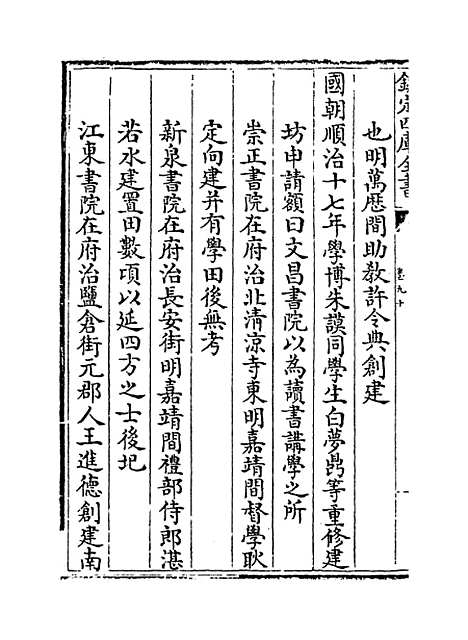 欽定四庫全書
卷九十
也明萬厯間助教許令典創建
國朝順治十七年學博朱謨同學生白夢鼎等重修建
坊申請額曰文昌書院以為讀書講學之所
崇正書院在府治北清涼寺東明嘉靖間督學耿
定向建并有學田後無考
新泉書院在府治長安街明嘉靖間禮部侍郎湛
若水建置田數項以延四方之士後圯
江東書院在府治鹽倉街元郡人王進德創建南